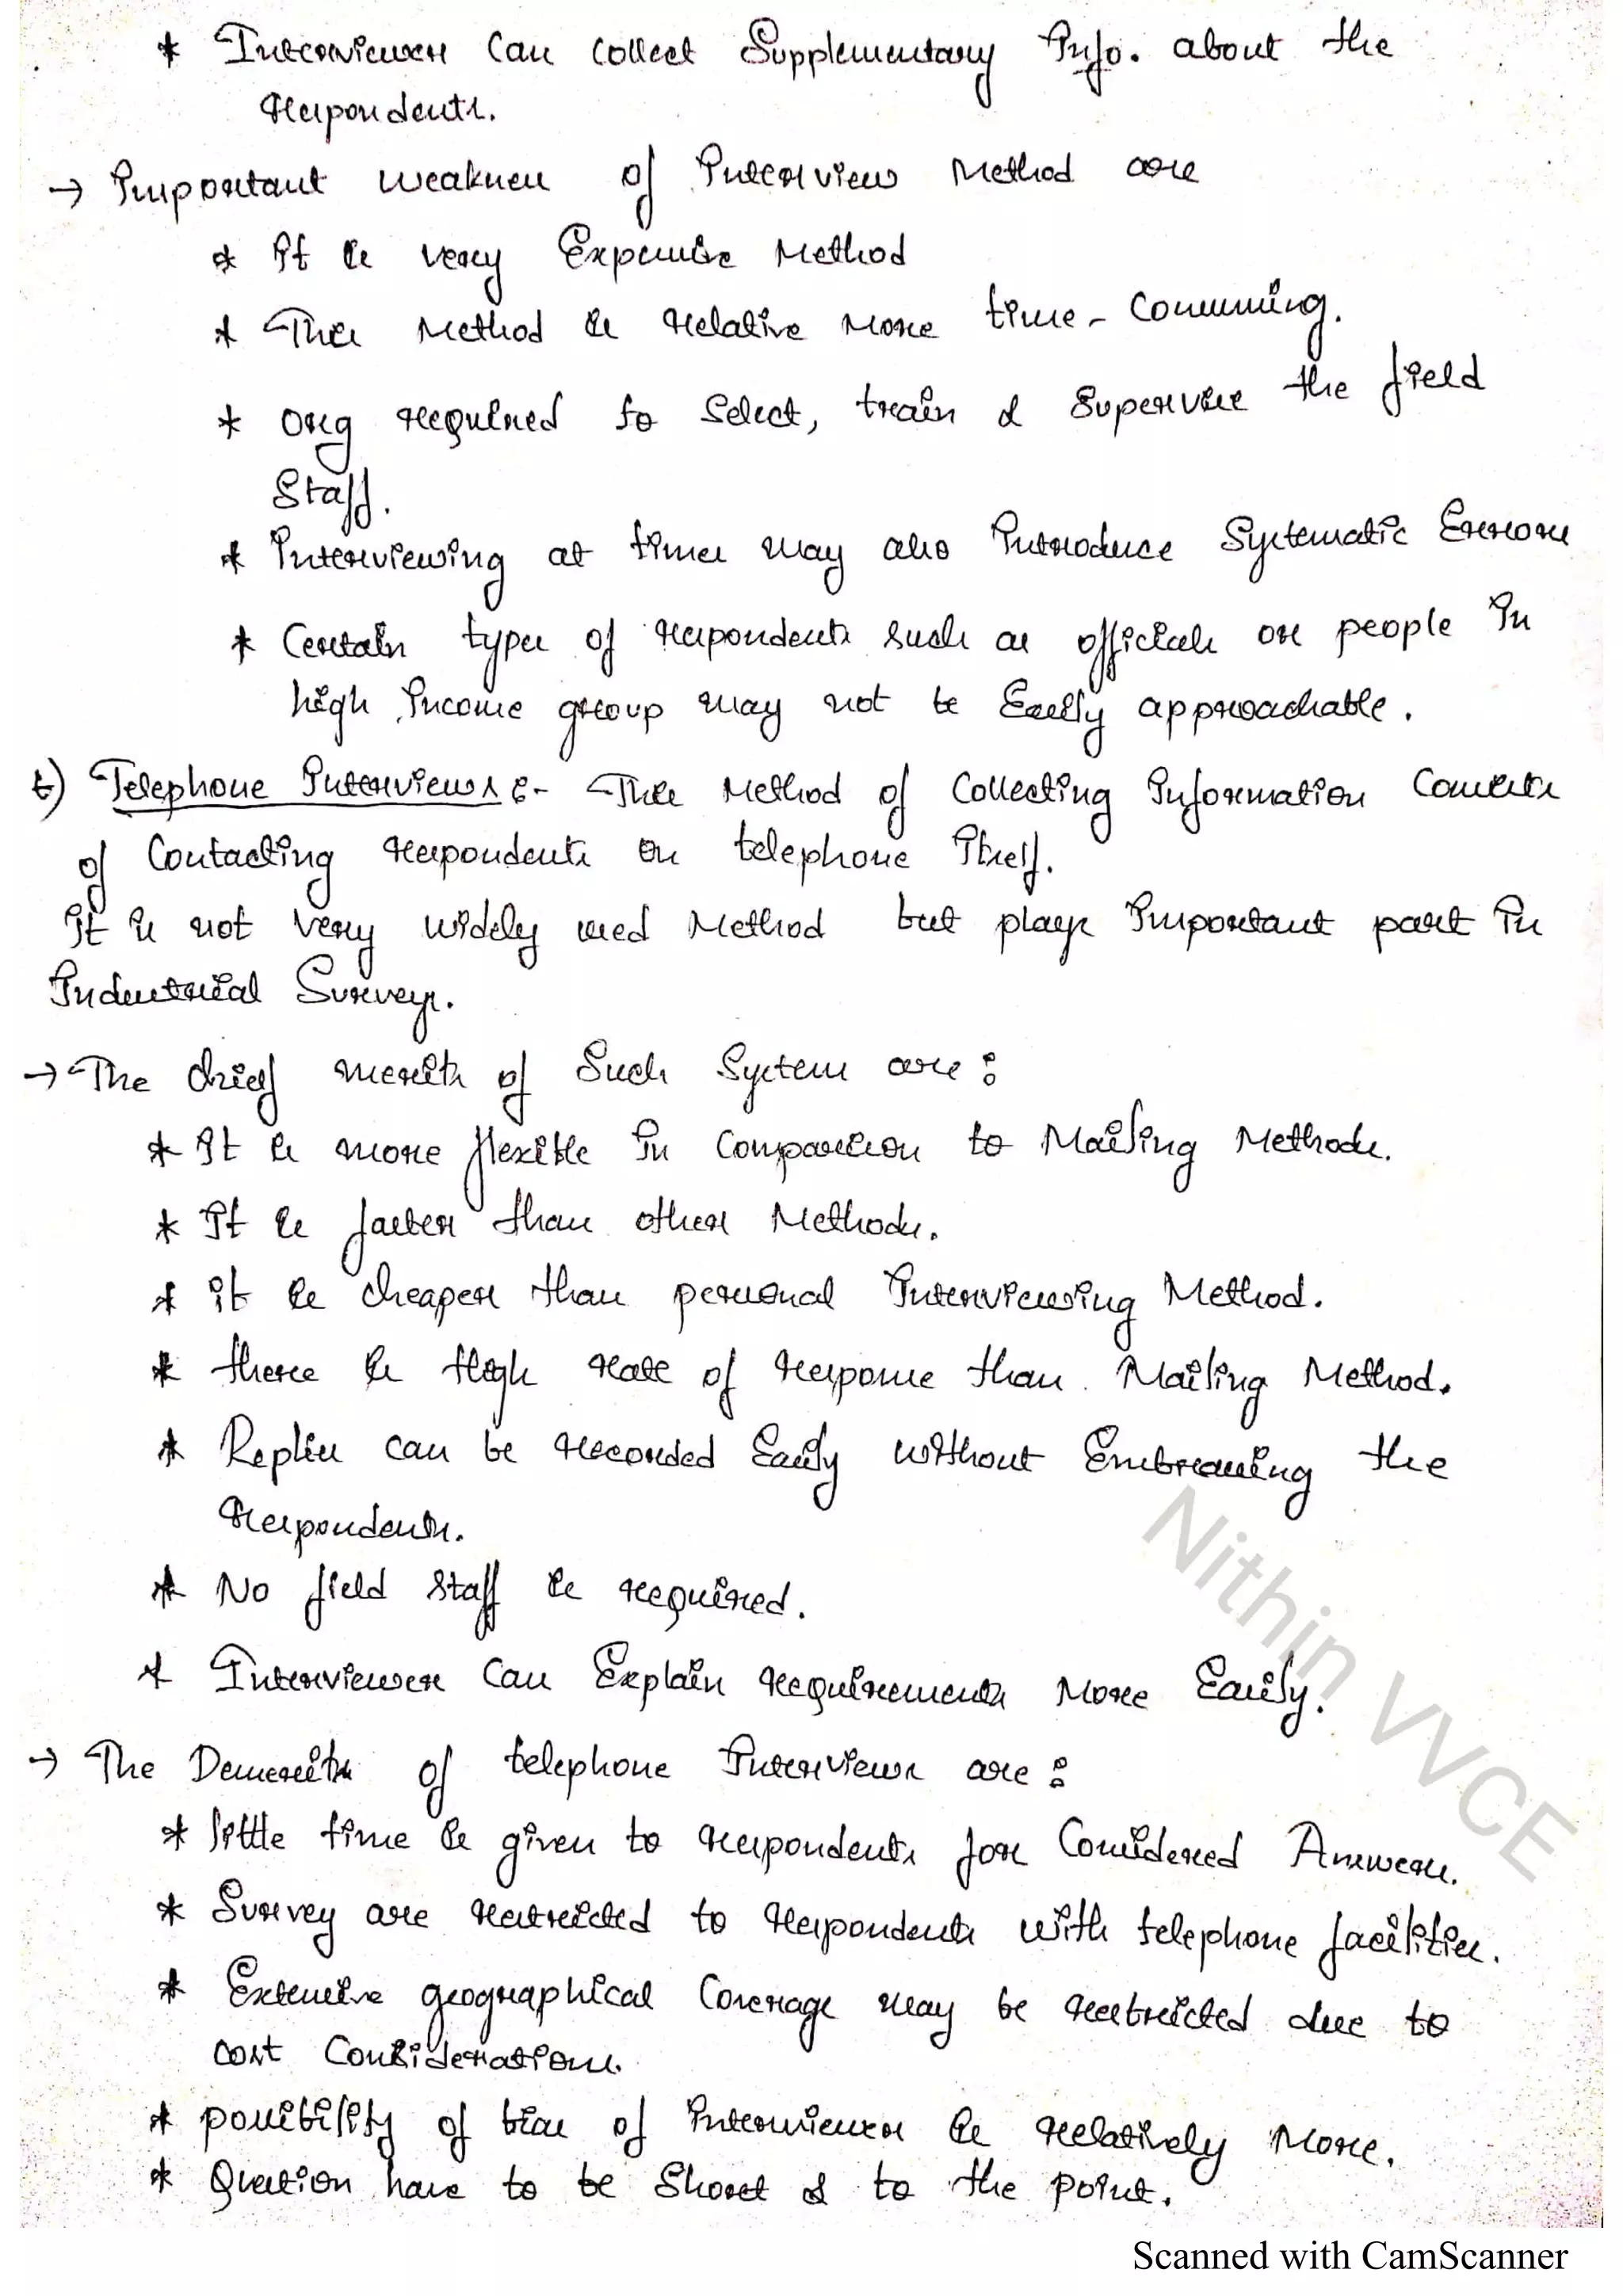 * Interviewer Can Collect Supplementary Info. about the
respondents.
→ Important weakness of Interview Method are
* It is very Expensive Method
* This Method is relative More time-Consuming.
* Org required to Select, train & Supervise the field
Staff.
* Interviewing at times may also Introduce Systematic Errors
* Certain types of respondents such as officials or people in
high Income group may not be Easily approachable.
t) Telephone Interviews :- This Method of Collecting Information Consists
of Contacting respondents on telephone Itself.
It is not very widely used Method but plays Important part in
Industrial Surveys.
→ The chief merits of Such System are :
* It is more flexible in Comparision to Mailing Methods.
* It is faster than other Methods.
* it is cheaper than personal Interviewing Method.
* there is High rate of response than Mailing Method.
* Replies can be recorded Easily without Embrassing the
Respondents.
* No field Staff is required.
* Interviewer Can Explain requirements More Easily.
→ The Demerits of telephone Interviews are :
* little time is given to respondents for Considered Answers.
* Survey are restricted to respondents with telephone facilities.
* Extensive geographical Coverage may be restricted due to
cost Considerations.
* possibility of bias of Interviewer is relatively More.
* Question have to be Short & to the point.
Nithin VVCE
Scanned with CamScanner